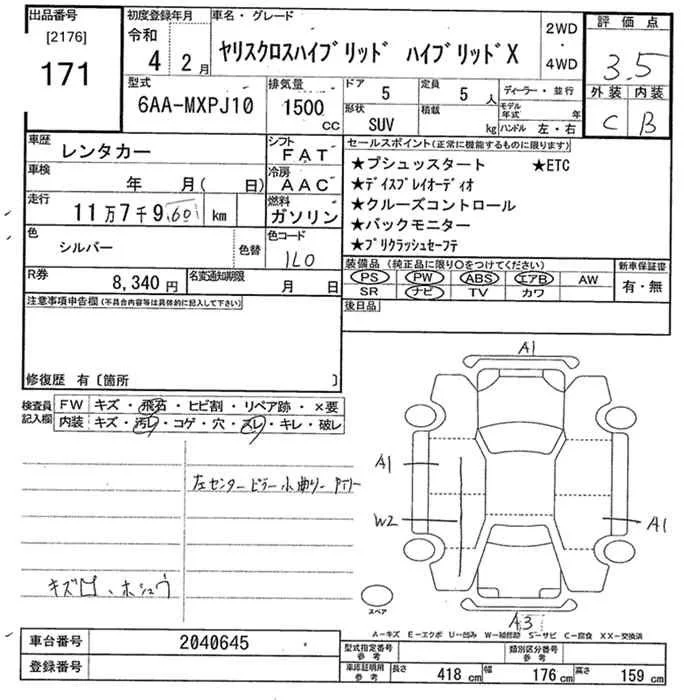 出品番号
[2176]
171
初度登録年月
令和
4 2月
車名・グレード
ヤリスクロスハイブリッド ハイブリッドX
2WD
・
4WD
評価点
3.5
外装 内装
C B
型式
6AA-MXPJ10
排気量
1500
CC
ドア
5
定員
5人
形状
SUV
積載
kg
ディーラー・並行
モデル
年式 年
ハンドル 左・右
車歴
レンタカー
シフト
FAT
車検
年 月( 日)
冷房
AAC
走行
11万7千9601 km
燃料
ガソリン
色
シルバー
色替
色コード
1L0
R券
8,340円
名変通知期限
月 日
セールスポイント(正常に機能するものに限ります)
★プシュッスタート ★ETC
★ディスプレイオーディオ
★クルーズコントロール
★バックモニター
★プリクラッシュセーフテ
装備品 (純正品に限り○をつけてください)
PS PW ABS エアB AW
SR ナビ TV カワ
新車保証書
有・無
後日品
注意事項申告欄(不具合内容等は具体的に記入して下さい)
修復歴 有〔箇所 〕
検査員
記入欄
FW キズ・飛石・ヒビ割・リペア跡・×要
内装 キズ・汚レ・コゲ・穴・スレ・キレ・破レ
左センターピラー小曲り
キズ凹、ホシュウ
A1
A1
W2
A1
A3
スペア
A-キズ E-エクボ U-凹み W-補修跡 S-サビ C-腐食 XX-交換済
車台番号
2040645
登録番号
型式指定番号
参考
類別区分番号
参考
車庫証明用
参考
長さ 418cm 幅 176cm 高さ 159cm